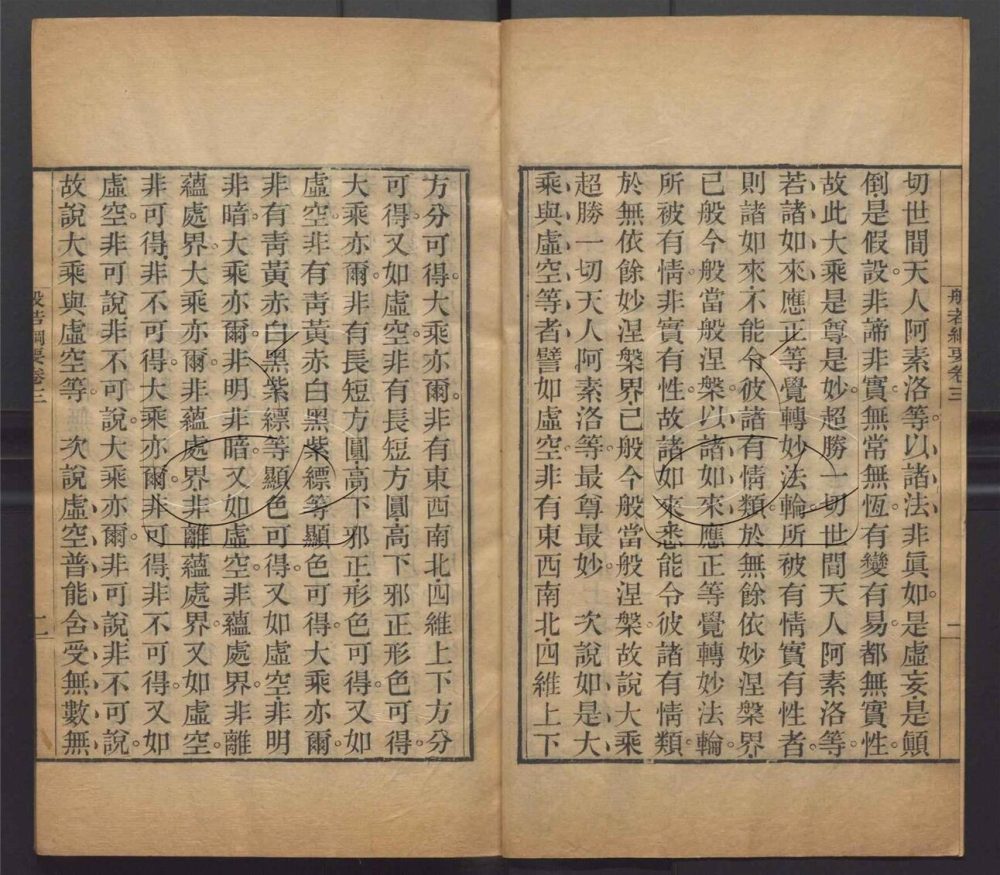 般若綱要卷三
一
切世間天人阿素洛等。以諸法非眞如。是虛妄。是顚
倒。是假設。非諦非實。無常無恆。有變有易。都無實性。
故此大乘是尊是妙。超勝一切世間天人阿素洛等。
若諸如來應正等覺轉妙法輪。所被有情實有性者。
則諸如來不能令彼諸有情類於無餘依妙涅槃界
已般今般當般涅槃。以諸如來應正等覺轉妙法輪。
所被有情非實有性。故諸如來悉能令彼諸有情類
於無依餘妙涅槃界已般今般當般涅槃。故說大乘
超勝一切天人阿素洛等。最尊最妙。 次說如是大
乘與虛空等者。譬如虛空。非有東西南北。四維上下
方分可得。大乘亦爾。非有東西南北。四維上下方分
可得。又如虛空。非有長短方圓。高下邪正形色可得。
大乘亦爾。非有長短方圓。高下邪正。形色可得。又如
虛空。非有靑黃赤白黑紫縹等顯色可得。大乘亦爾。
非有靑黃赤白黑紫縹等顯色可得。又如虛空非明
非暗。大乘亦爾。非明非暗。又如虛空。非蘊處界。非離
蘊處界。大乘亦爾。非蘊處界非離蘊處界。又如虛空。
非可得。非不可得。大乘亦爾。非可得。非不可得。又如
虛空。非可說。非不可說。大乘亦爾。非可說。非不可說。
故說大乘與虛空等。 次說虛空普能含受無數無
般若綱要卷三
二